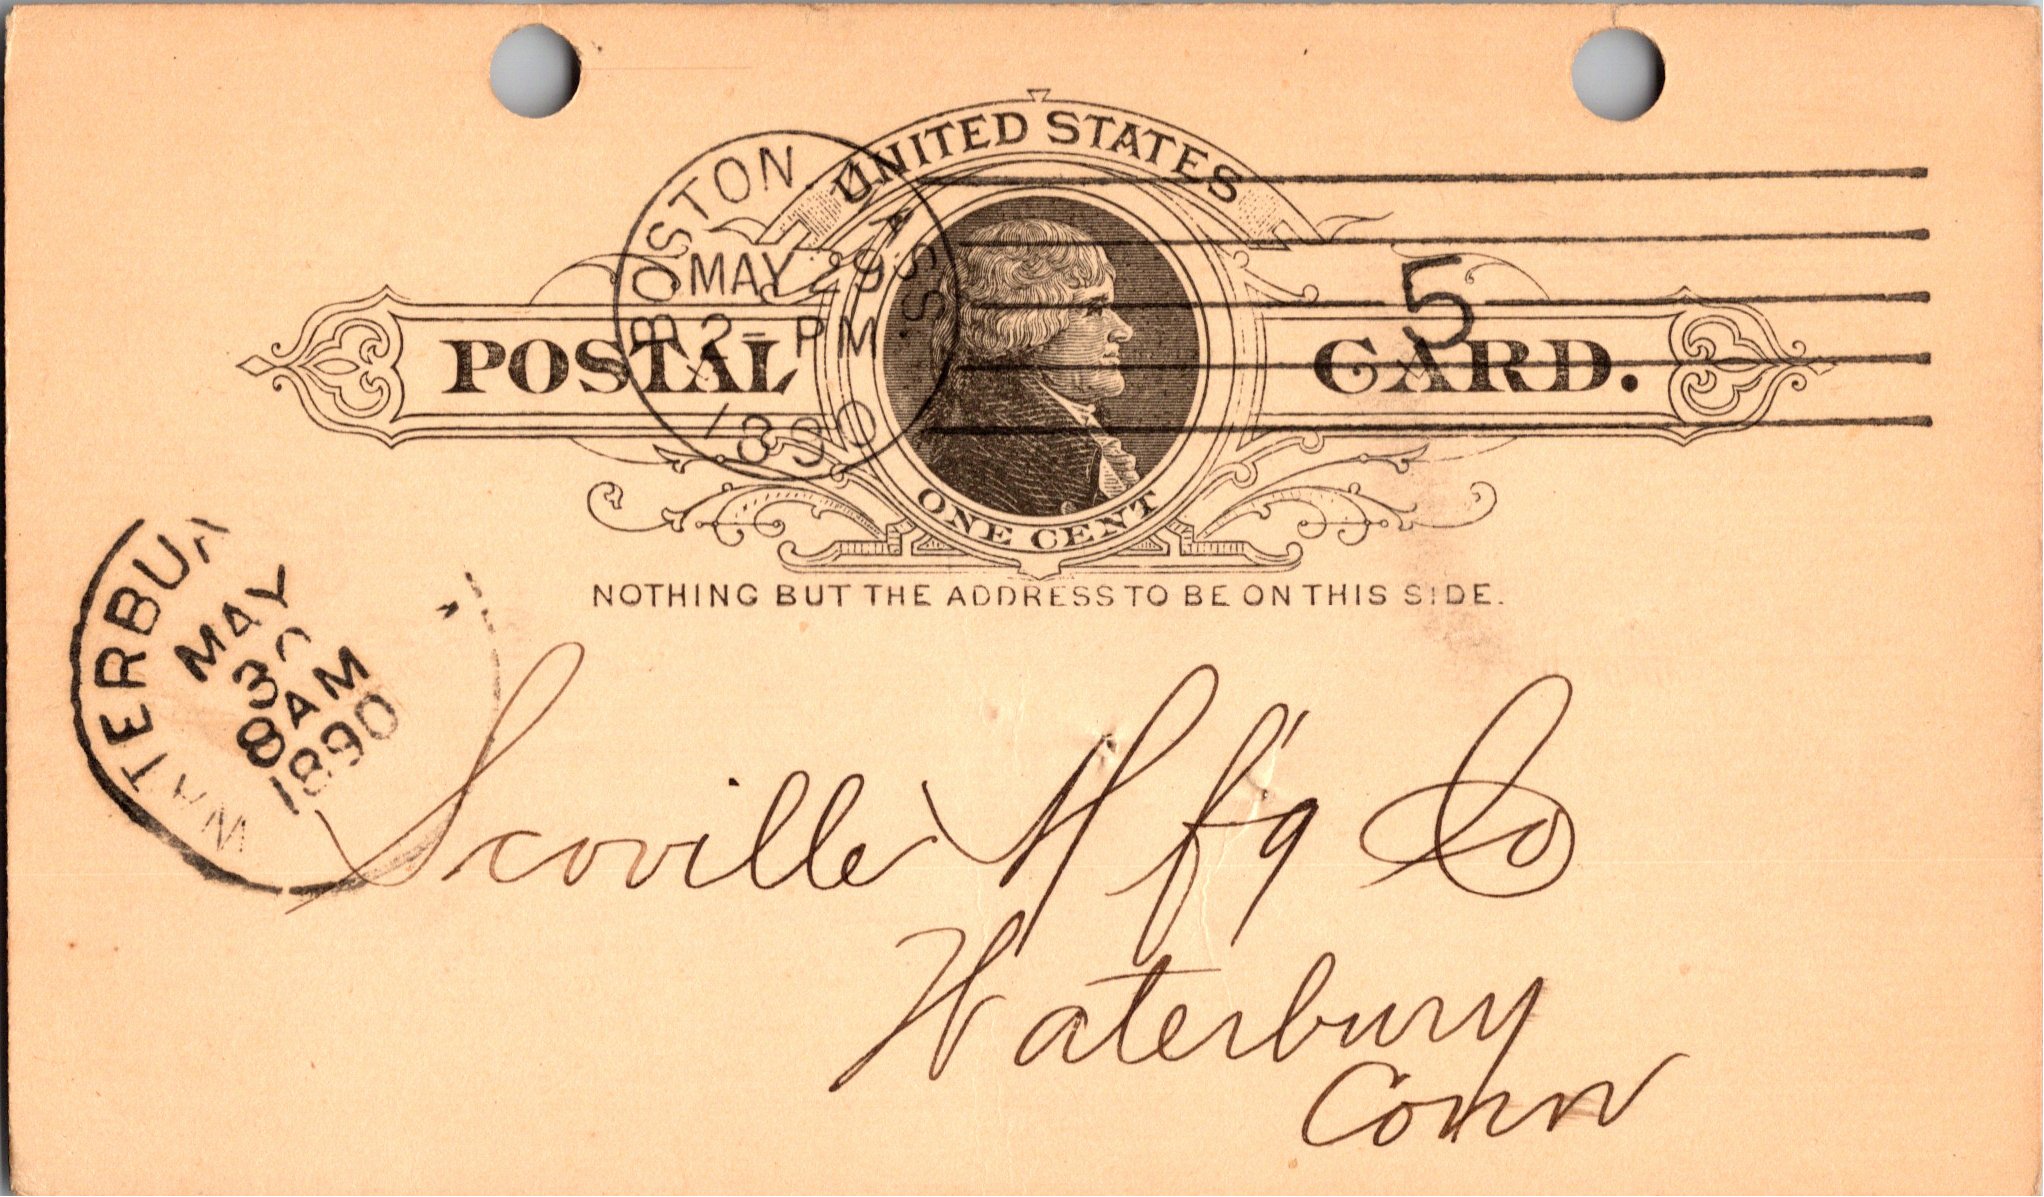 UNITED STATES
POSTAL CARD.
ONE CENT
NOTHING BUT THE ADDRESS TO BE ON THIS SIDE.
BOSTON MASS.
MAY 29
2 - PM
1890
5
WATERBU
MAY
30
8AM
1890
Scoville M'f'g Co
Waterbury
Conn